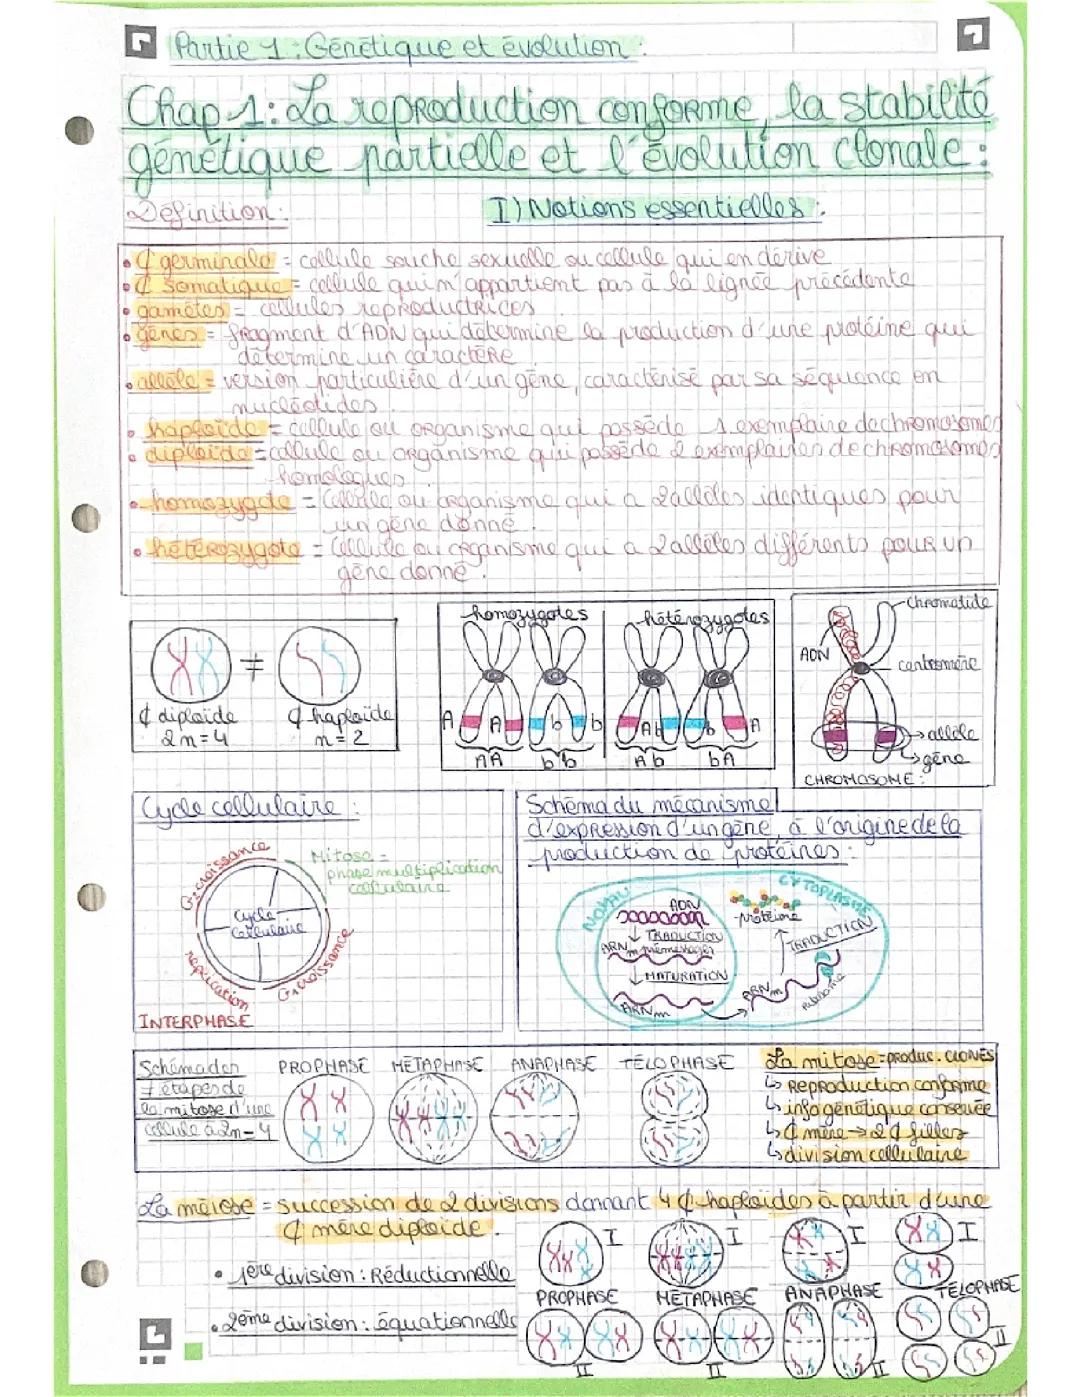 Partie 1 : Génétique et évolution :
Chap 1 : La reproduction conforme, la stabilité
génétique partielle et l'évolution clonale :
Définition :
I) Notions essentielles :
• ₵ germinale = cellule souche sexuelle ou cellule qui en dérive
• ₵ somatique = cellule qui n'appartient pas à la lignée précédente
• gamètes = cellules reproductrices
• gènes = fragment d'ADN qui détermine la production d'une protéine qui
détermine un caractère
• allèle = version particulière d'un gène, caractérisé par sa séquence en
nucléotides.
• haploïde = cellule ou organisme qui possède 1 exemplaire de chromosomes
• diploïde = cellule ou organisme qui possède 2 exemplaires de chromosomes
homologues.
• homozygote = Cellule ou organisme qui a 2 allèles identiques pour
un gène donné.
• hétérozygote = Cellule ou organisme qui a 2 allèles différents pour un
gène donné.
₵ diploïde
2n=4
≠
₵ haploïde
n=2
homozygotes
A A b b
AA bb
hétérozygotes
A b b A
Ab bA
Chromatide
ADN
centromère
allèle
gène
CHROMOSOME :
Cycle cellulaire :
G2 croissance
Mitose =
phase multiplication
cellulaire
Cycle
Cellulaire
réplication
G1 croissance
INTERPHASE
Schéma du mécanisme
d'expression d'un gène, à l'origine de la
production de protéines :
NOYAU
CYTOPLASME
ADN
↓ TRADUCTION
ARNm prémessager
↓ MATURATION
ARNm
Protéine
↑ TRADUCTION
ARNm
ribosome
Schéma des
≠ étapes de
la mitose d'une
cellule à 2n=4
PROPHASE
MÉTAPHASE
ANAPHASE
TÉLOPHASE
La mitose = produc. CLONES
↳ Reproduction conforme
↳ info génétique conservée
↳ ₵ mère → 2 ₵ filles
↳ division cellulaire
La méiose = succession de 2 divisions donnant 4 ₵ haploïdes à partir d'une
₵ mère diploïde.
• 1ère division : Réductionnelle
• 2ème division : équationnelle
I
I
I
I
PROPHASE
MÉTAPHASE
ANAPHASE
TÉLOPHASE
II
II
II
II